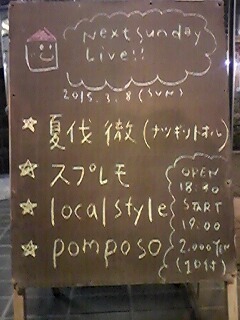 Next Sunday
Live!!
2015.3.8 (SUN)
☆ 夏伐 徹 (ナツギリトオル)
☆ スプレモ
☆ local style
☆ pomposo
OPEN
18:40
START
19:00
2,000YEN